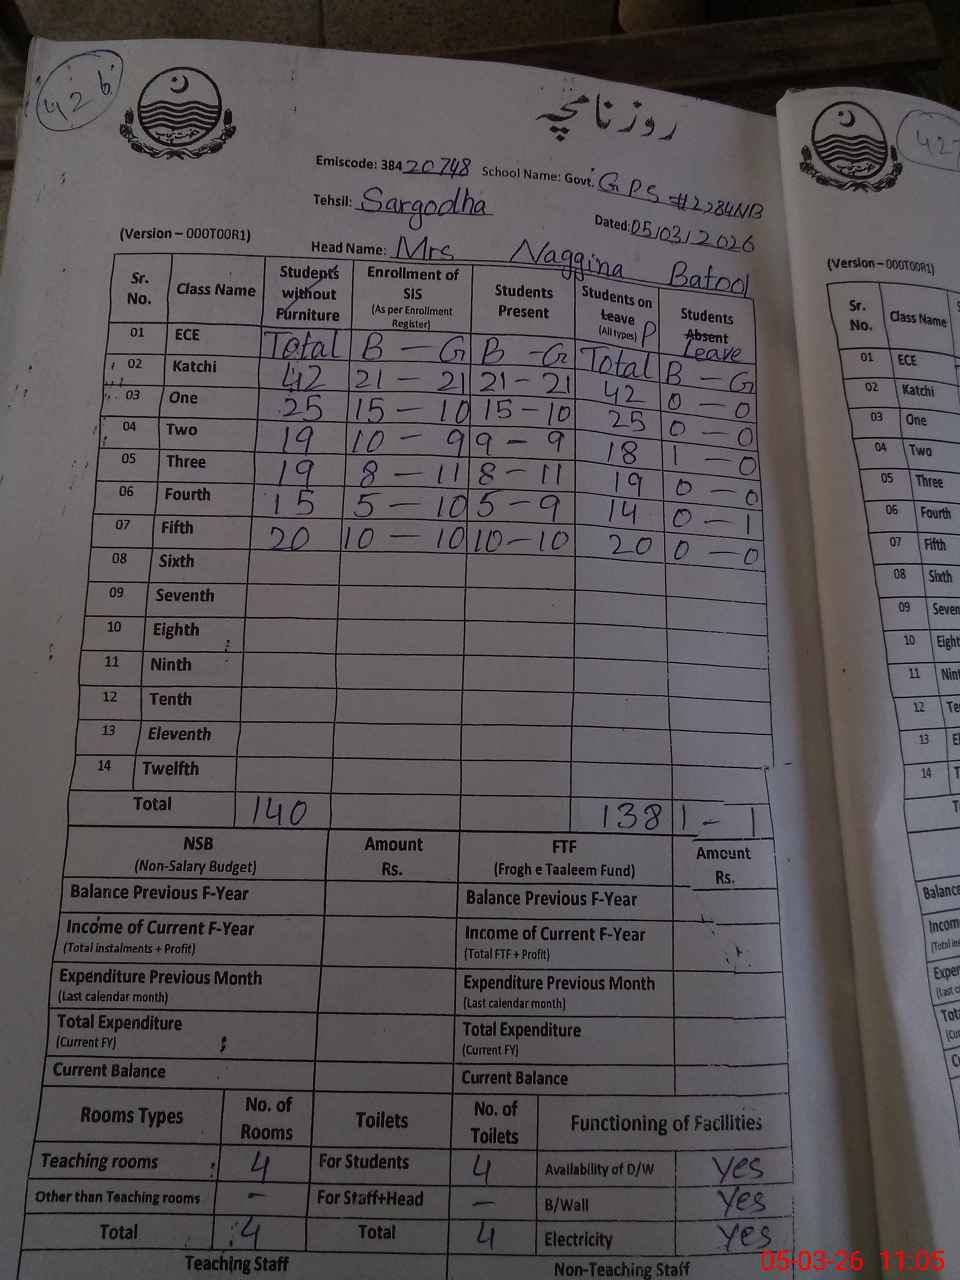 426
روزنامچہ
Emiscode: 38420748 School Name: Govt. GPS #2284NB
Tehsil: Sargodha Dated: 05/03/2026
(Version – 000T00R1) Head Name: Mrs Naggina Batool
Sr. No. Class Name Students without Furniture Enrollment of SIS (As per Enrollment Register) Students Present Students on Leave (All types) P Students Absent Leave
01 ECE Total B – G B – G Total B – G
02 Katchi 42 21 – 21 21 – 21 42 0 – 0
03 One 25 15 – 10 15 – 10 25 0 – 0
04 Two 19 10 – 9 9 – 9 18 1 – 0
05 Three 19 8 – 11 8 – 11 19 0 – 0
06 Fourth 15 5 – 10 5 – 9 14 0 – 1
07 Fifth 20 10 – 10 10 – 10 20 0 – 0
08 Sixth
09 Seventh
10 Eighth
11 Ninth
12 Tenth
13 Eleventh
14 Twelfth
Total 140 138 1 – 1
NSB (Non-Salary Budget) Amount Rs. FTF (Frogh e Taaleem Fund) Amount Rs.
Balance Previous F-Year Balance Previous F-Year
Income of Current F-Year Income of Current F-Year
(Total instalments + Profit) (Total FTF + Profit)
Expenditure Previous Month Expenditure Previous Month
(Last calendar month) (Last calendar month)
Total Expenditure Total Expenditure
(Current FY) (Current FY)
Current Balance Current Balance
Rooms Types No. of Rooms Toilets No. of Toilets Functioning of Facilities
Teaching rooms 4 For Students 4 Availability of D/W Yes
Other than Teaching rooms – For Staff+Head – B/Wall Yes
Total 4 Total 4 Electricity Yes
Teaching Staff Non-Teaching Staff
(Version – 000T00R1)
Sr. No. Class Name
01 ECE
02 Katchi
03 One
04 Two
05 Three
06 Fourth
07 Fifth
08 Sixth
09
10
11
12
13
14
05-03-26 11:05